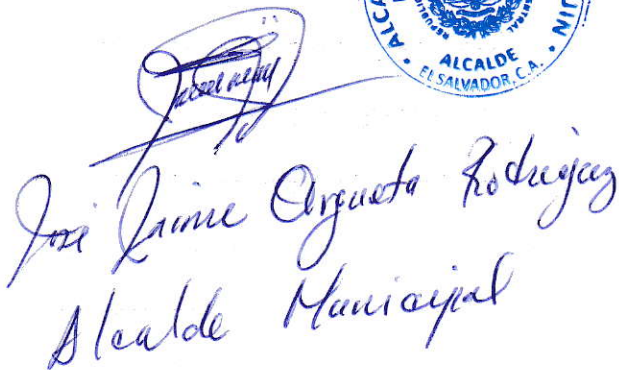 ALCALDE
EL SALVADOR, C.A.
José Jaime Argueta Rodríguez
Alcalde Municipal